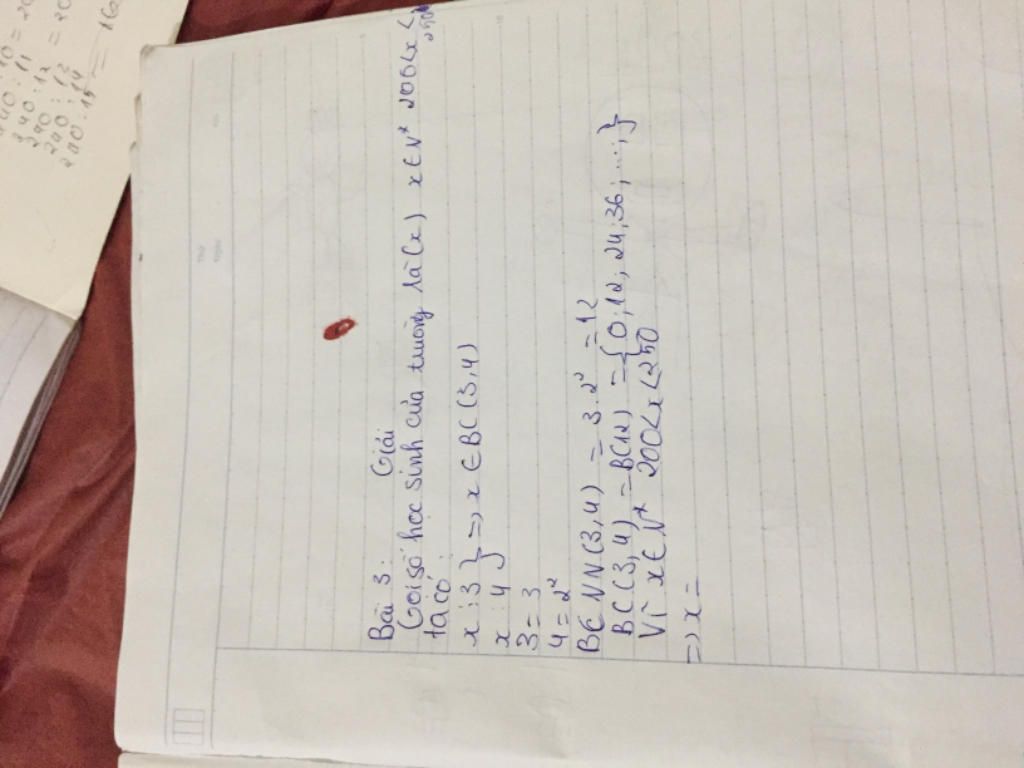 Bài 3: Giải
Gọi số học sinh của trường là (x) x∈N* 200<x<250
ta có:
x ⋮ 3 } => x ∈ BC(3,4)
x ⋮ 4
3 = 3
4 = 2²
BCNN(3,4) = 3.2² = 12
BC(3,4) = B(12) = {0;12; 24;36; ...;}
Vì x∈N* 200<x<250
=> x =
240:11
240:12